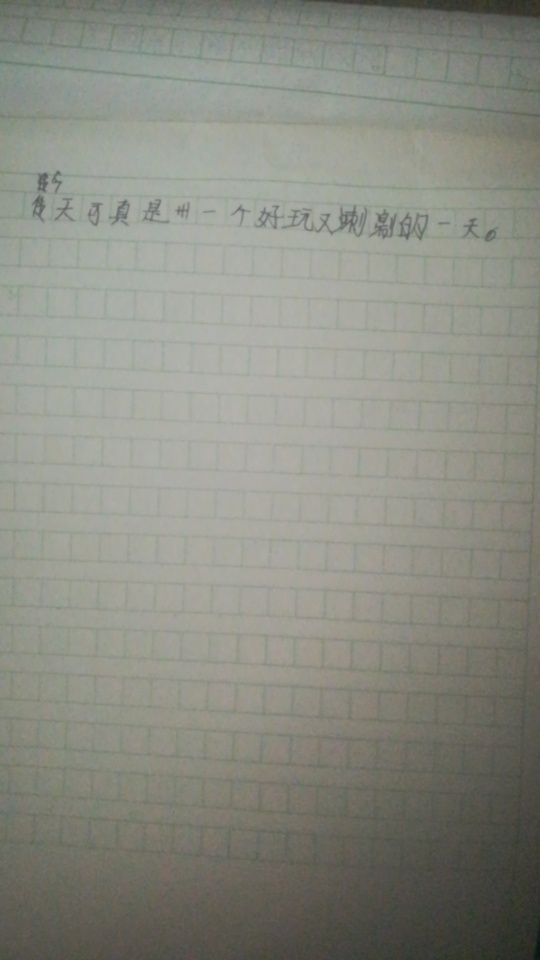 今
天可真是一个好玩又刺激的一天。